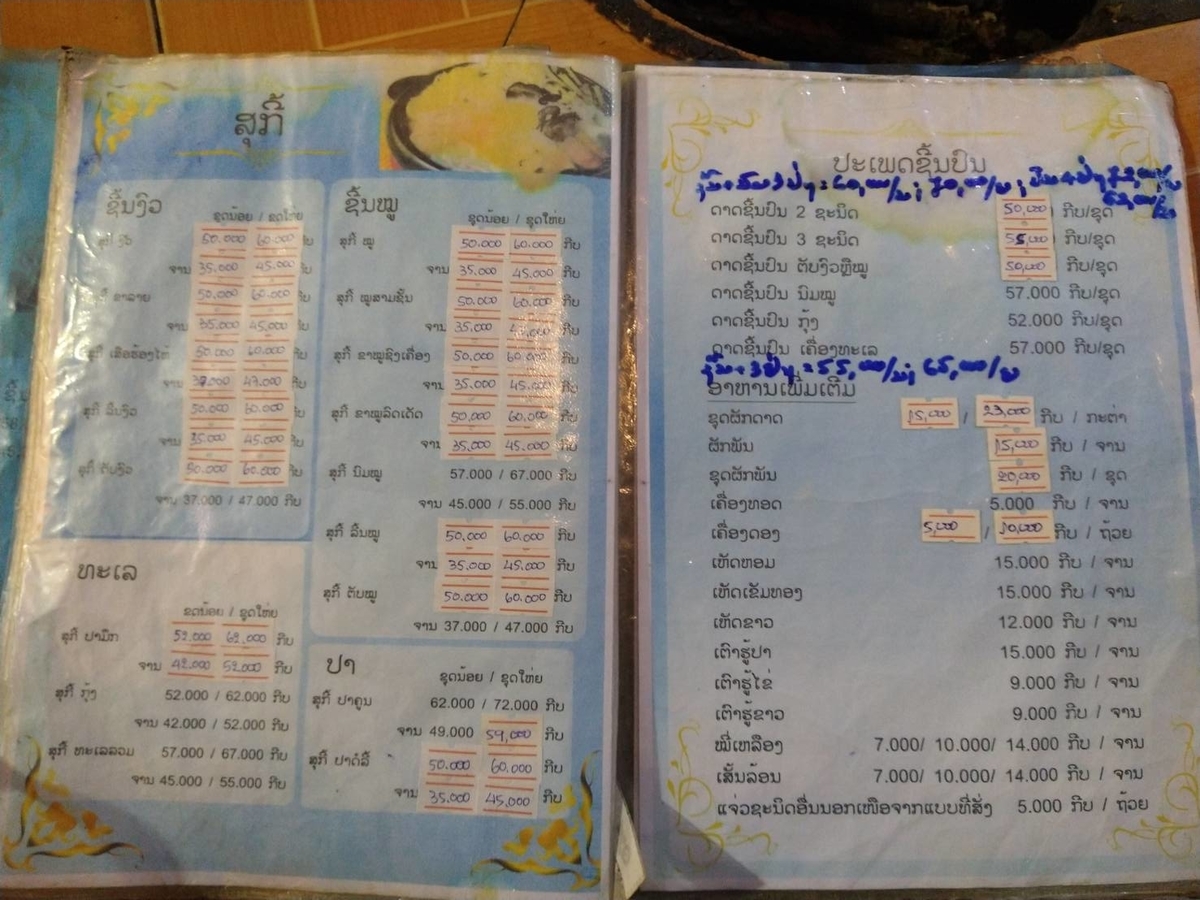 ສຸກີ້
ຊີ້ນງົວ
ຊຸດນ້ອຍ / ຊຸດໃຫ່ຍ
ສຸກີ້ ງົວ 50.000 60.000 ກີບ
ຈານ 35.000 45.000 ກີບ
ສຸກີ້ ຂາລາຍ 50.000 60.000 ກີບ
ຈານ 35.000 45.000 ກີບ
ສຸກີ້ ເສືອຮ້ອງໄຫ້ 50.000 60.000 ກີບ
ຈານ 37.000 47.000 ກີບ
ສຸກີ້ ລີ້ນງົວ 50.000 60.000 ກີບ
ຈານ 35.000 45.000 ກີບ
ສຸກີ້ ຕັບງົວ 50.000 60.000 ກີບ
ຈານ 37.000 / 47.000 ກີບ
ທະເລ
ຊຸດນ້ອຍ / ຊຸດໃຫ່ຍ
ສຸກີ້ ປາມຶກ 52.000 62.000 ກີບ
ຈານ 42.000 52.000 ກີບ
ສຸກີ້ ກຸ້ງ 52.000 / 62.000 ກີບ
ຈານ 42.000 / 52.000 ກີບ
ສຸກີ້ ທະເລລວມ 57.000 / 67.000 ກີບ
ຈານ 45.000 / 55.000 ກີບ
ຊີ້ນໝູ
ຊຸດນ້ອຍ / ຊຸດໃຫ່ຍ
ສຸກີ້ ໝູ 50.000 60.000 ກີບ
ຈານ 35.000 45.000 ກີບ
ສຸກີ້ ໝູສາມຊັ້ນ 50.000 60.000 ກີບ
ຈານ 35.000 45.000 ກີບ
ສຸກີ້ ຂາໝູຊົງເຄື່ອງ 50.000 60.000 ກີບ
ຈານ 35.000 45.000 ກີບ
ສຸກີ້ ຂາໝູລົດເດັດ 50.000 60.000 ກີບ
ຈານ 35.000 45.000 ກີບ
ສຸກີ້ ນົມໝູ 57.000 / 67.000 ກີບ
ຈານ 45.000 / 55.000 ກີບ
ສຸກີ້ ລີ້ນໝູ 50.000 60.000 ກີບ
ຈານ 35.000 45.000 ກີບ
ສຸກີ້ ຕັບໝູ 50.000 60.000 ກີບ
ຈານ 37.000 / 47.000 ກີບ
ປາ
ຊຸດນ້ອຍ / ຊຸດໃຫ່ຍ
ສຸກີ້ ປາຄູນ 62.000 / 72.000 ກີບ
ຈານ 49.000 59,000 ກີບ
ສຸກີ້ ປາດໍລີ້ 50.000 60.000 ກີບ
ຈານ 35.000 45.000 ກີບ
ປະເພດຊີ້ນປົນ
ດາດຊີ້ນປົນ 2 ຊະນິດ 50,000 ກີບ/ຊຸດ
ດາດຊີ້ນປົນ 3 ຊະນິດ 55,000 ກີບ/ຊຸດ
ດາດຊີ້ນປົນ ຕັບງົວຫຼືໝູ 50,000 ກີບ/ຊຸດ
ດາດຊີ້ນປົນ ນົມໝູ 57.000 ກີບ/ຊຸດ
ດາດຊີ້ນປົນ ກຸ້ງ 52.000 ກີບ/ຊຸດ
ດາດຊີ້ນປົນ ເຄື່ອງທະເລ 57.000 ກີບ/ຊຸດ
ອາຫານເພີ່ມເຕີມ
ຊຸດຜັກດາດ 15,000 / 23,000 ກີບ / ກະຕ່າ
ຜັກພັນ 15,000 ກີບ / ຈານ
ຊຸດຜັກພັນ 20,000 ກີບ / ຊຸດ
ເຄື່ອງທອດ 5.000 ກີບ / ຈານ
ເຄື່ອງດອງ 5,000 / 10,000 ກີບ / ຖ້ວຍ
ເຫັດຫອມ 15.000 ກີບ / ຈານ
ເຫັດເຂັມທອງ 15.000 ກີບ / ຈານ
ເຫັດຂາວ 12.000 ກີບ / ຈານ
ເຕົາຮູ້ປາ 15.000 ກີບ / ຈານ
ເຕົາຮູ້ໄຂ່ 9.000 ກີບ / ຈານ
ເຕົາຮູ້ຂາວ 9.000 ກີບ / ຈານ
ໝີ່ເຫລືອງ 7.000/ 10.000/ 14.000 ກີບ / ຈານ
ເສັ້ນລ້ອນ 7.000/ 10.000/ 14.000 ກີບ / ຈານ
ແຈ່ວຊະນິດອື່ນນອກເໜືອຈາກແບບທີ່ສັ່ງ 5.000 ກີບ / ຖ້ວຍ